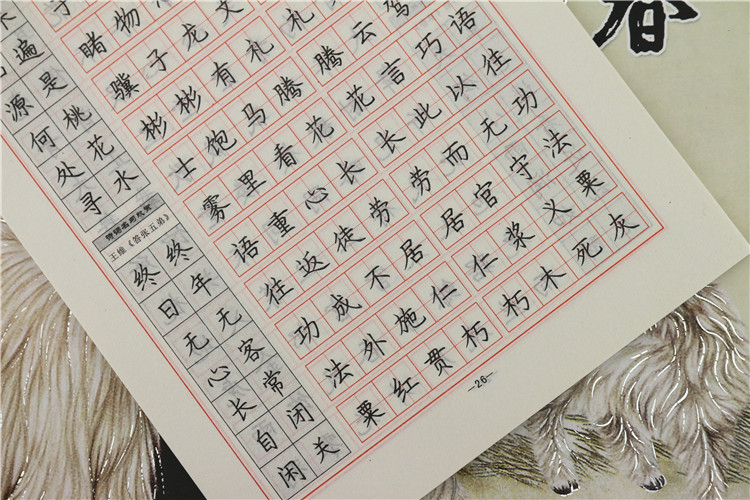 遍是桃花水
源何处寻
王维《答张五弟》
终年无客常闭关
终日无心长自闲
睹物
骥子龙文
彬彬有礼 礼
士饱马腾 腾云驾
雾里看花 花言巧语
语重心长 长此以往
往返徒劳 劳而无功
功成不居 居官守法
法外施仁 仁浆义粟
粟红贯朽 朽木死灰
—26—
春